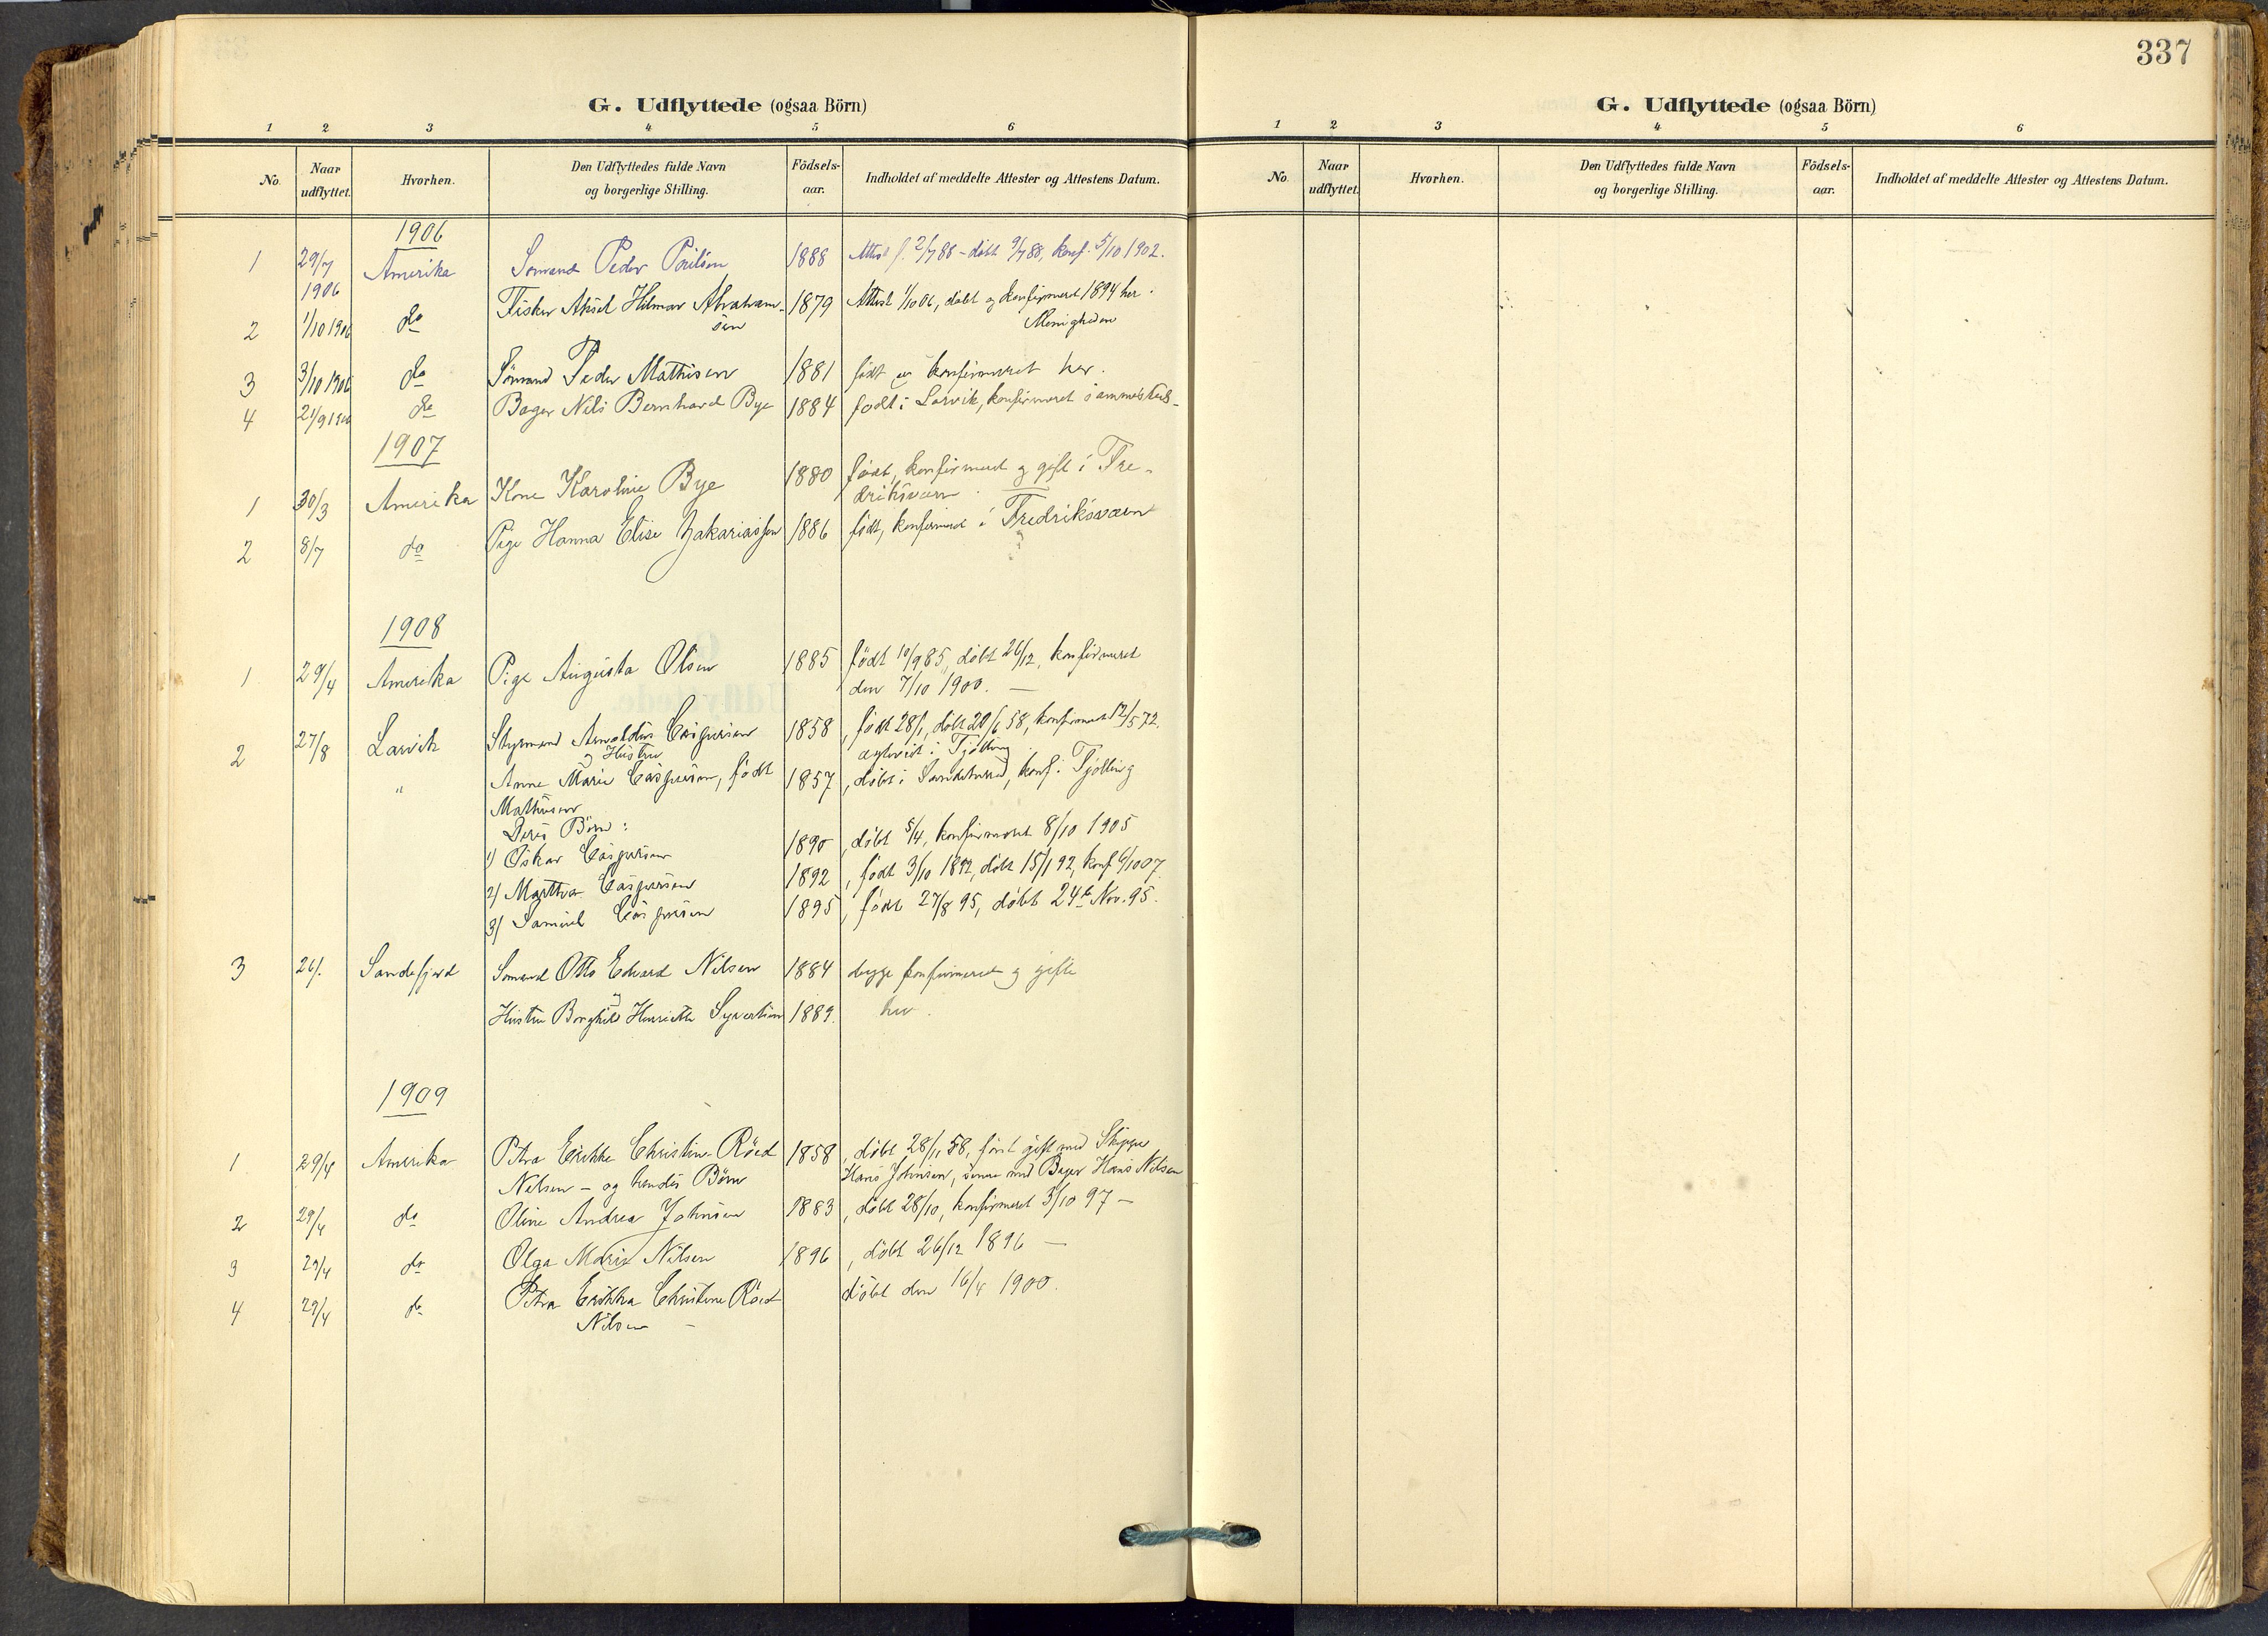 337
G. Udflyttede (ogsaa Börn)
1 2 3 4 5 6
No. Naar udflyttet. Hvorhen. Den Udflyttedes fulde Navn og borgerlige Stilling. Födsels-aar. Indholdet af meddelte Attester og Attestens Datum.
1906
1 29/7 1906 Amerika Sömand Peder Poulsen 1888 Attest f. 2/7 88 - döbt 9/7 88, konf. 5/10 1902.
2 1/10 1906 do Fisker Aksel Hilmar Abraham- 1879 Attest 1/10 06, döbt og konfirmeret 1894 her.
sen Menigheden
3 3/10 1906 do Sömand Peder Mathisen 1881 födt og konfirmeret her.
4 21/9 1906 do Bager Nils Bernhard Bye 1884 født i Larvik, konfirmeret sammesteds-
1907
1 30/3 Amerika Kone Karoline Bye 1880 födt, konfirmeret og gift i Fre-
driksværn
2 8/7 do Pige Hanna Elise Zakariassen 1886 födt, konfirmeret i Fredriksværn
1908
1 29/4 Amerika Pige Augusta Olsen 1885 født 10/9 85, döbt 26/12, konfirmeret
den 7/10 1900. —
2 27/8 Larvik Styrmand Arnoldus Caspersen 1858, födt 28/1, döbt 20/6 58, konfirmeret 12/5 72.
og Hustru ægteviet i Tjölling
" Anne Marie Caspersen, født 1857, döbt i Sandeherred, konf. Tjölling
Mathisen
Deres Börn:
1) Oskar Caspersen 1890, döbt 5/4, konfirmeret 8/10 1905
2) Martha Caspersen 1892, födt 3/10 1892, döbt 15/1 92, konf 6/10 07
3) Samuel Caspersen 1895, födt 27/8 95, döbt 24de Nov. 95.
3 26/. Sandefjord Sömand Otto Edvard Nilsen 1884 begge konfirmeret og gifte
og
Hustru Borghild Henriette Syvertsen 1889. her.
1909
1 29/4 Amerika Petra Erikke Christine Röed 1858, döbt 28/11 58, först gift med Skipper
Nilsen - og hendes Börn Hans Johnsen, senere med Bager Hans Nilsen
2 29/4 do Oline Andrea Johnsen 1883, döbt 28/10, konfirmeret 3/10 97 —
3 29/4 do Olga Marie Nilsen 1896, döbt 26/12 1896 —
4 29/4 do Petra Erikka Christine Röed döbt den 16/4 1900.
Nilsen —
G. Udflyttede (ogsaa Börn)
1 2 3 4 5 6
No. Naar udflyttet. Hvorhen. Den Udflyttedes fulde Navn og borgerlige Stilling. Födsels-aar. Indholdet af meddelte Attester og Attestens Datum.